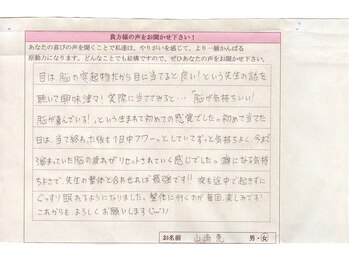 貴方様の声をお聞かせ下さい!
あなたの喜びの声を聞くことで私達は、やりがいを感じて、より一層がんばる
原動力になります。どんなことでも結構ですので、ぜひあなたの声をお聞かせ下さい。
目は脳の突起物だから目に当てると良い!という先生の話を
聴いて興味津々!実際に当ててみると…"脳が気持ちいい!
脳が喜んでいる!、という生まれて初めての感覚でした。初めて当てた
日は、当て終わった後も1日中フワーッとしていてずっと気持ちよく、今まで
溜まっていた脳の疲れがリセットされていく感じでした。癖になる気持
ちよさで、先生の整体と合わせれば"最強です!!夜も途中で起きずに
ぐっすり眠れるようになりました。整体に行くのが毎回楽しみです!
これからもよろしくお願いします
お名前 山崎 恵 男・女